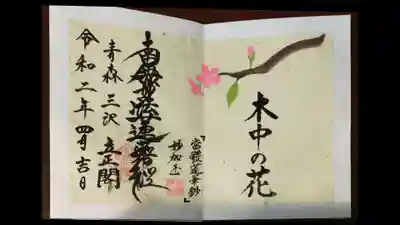 木中の花
『當體蓮華鈔』
南無妙法蓮華経
青森 三沢 立正閣
令和二年四月吉日